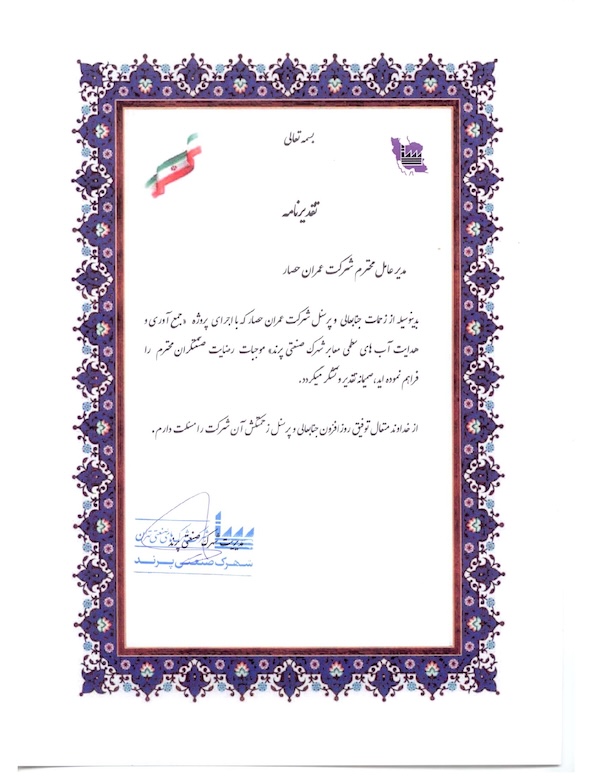 بسمه تعالی
تقدیرنامه
مدیر عامل محترم شرکت عمران حصار
بدینوسیله از زحمات جنابعالی و پرسنل شرکت عمران حصار که با اجرای پروژه «جمع آوری و
هدایت آب های سطحی معابر شهرک صنعتی پرند» موجبات رضایت صنعتگران محترم را
فراهم نموده اید، صمیمانه تقدیر و تشکر میگردد.
از خداوند متعال توفیق روز افزون جنابعالی و پرسنل زحمتکش آن شرکت را مسئلت دارم.
مدیریت شهرک صنعتی پرند
شهرک صنعتی پرند